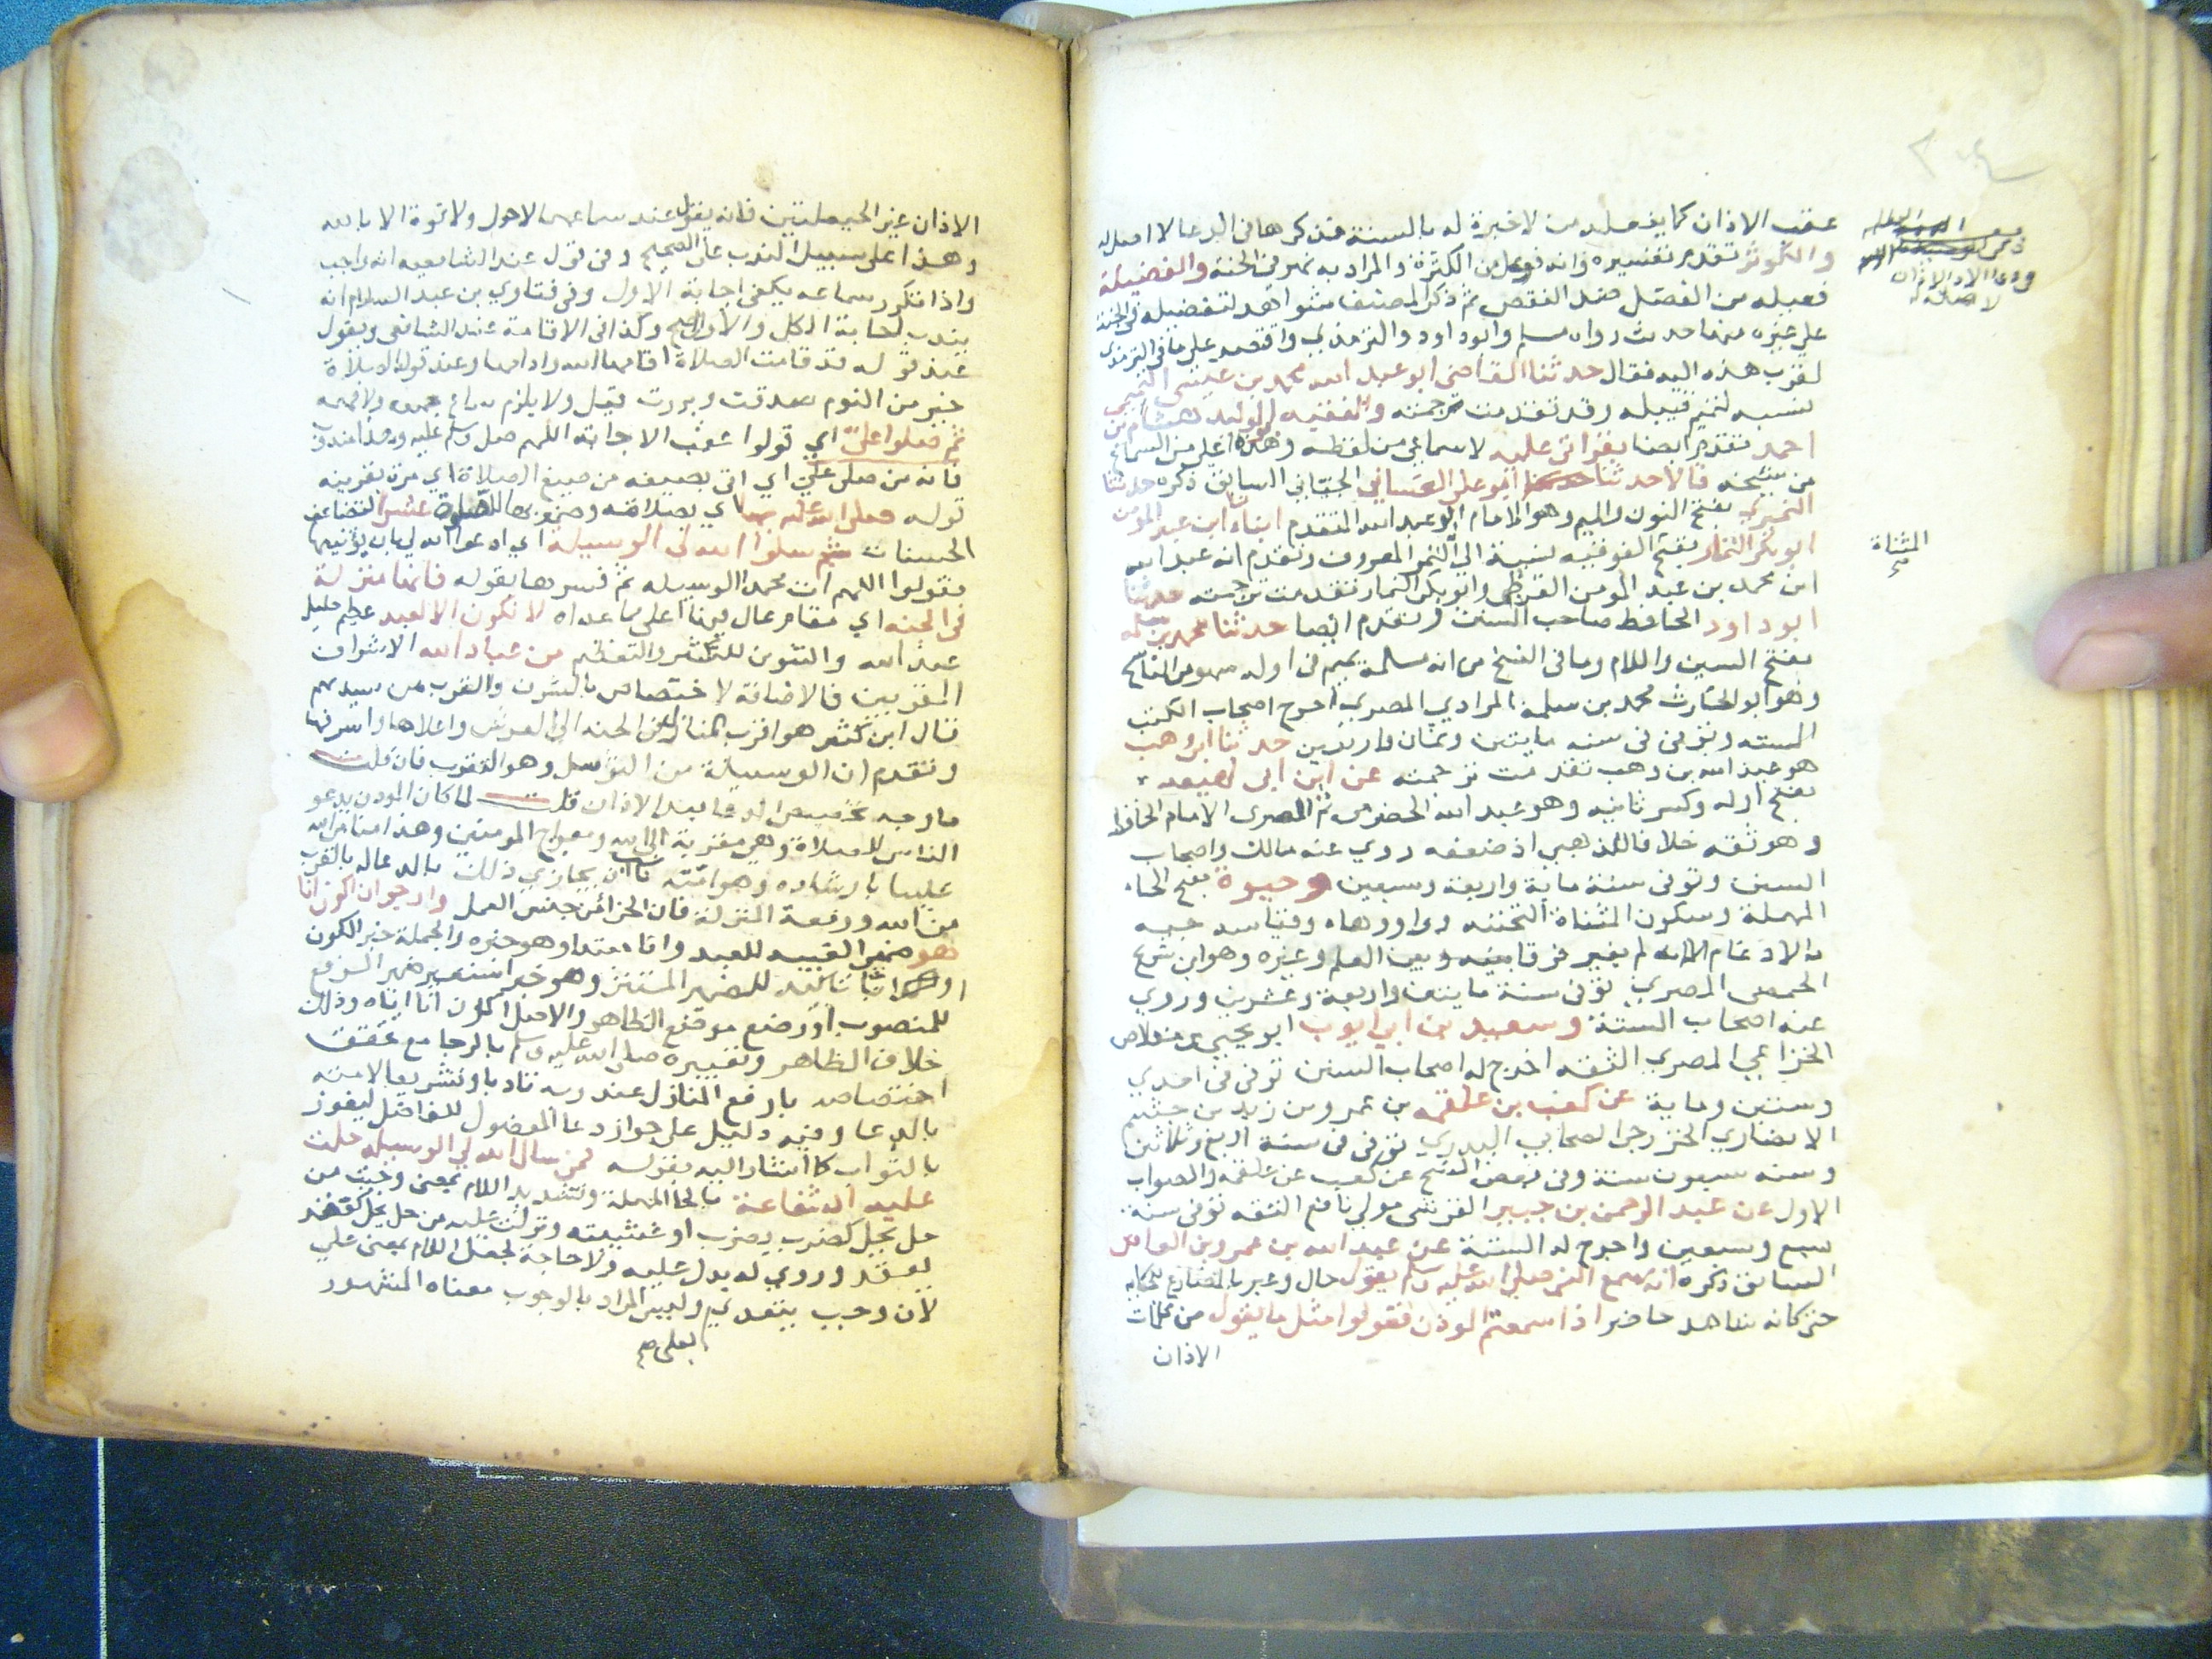 عقب الاذان كما يفعله من لا خبرة له بالسنة فذكرها فى الدعا لا اصل له
والكوثر تقدم تفسيره وانه فوعل من الكثرة والمراد به نهر فى الجنة والفضيلة
فعيلة من الفضل ضد النقص ثم ذكر المصنف شواهد لتفضيله فى الجنة
على غيره منها حديث رواه مسلم وابو داود والترمذي واقتصر على ما فى الترمذى
لقرب هذه اليه فقال حدثنا القاضى ابو عبد الله محمد بن عيسى التميمى
نسبه لتميم قبيله وقد تقدمت ترجمته والفقيه ابو الوليد هشام بن
احمد تقدم ايضا بقراتى عليه لا سماعى من لفظه وهذه اعلى من السماع
من شيخه قالا حدثنا ابو على الغسانى الجيانى السابق ذكره حدثنا
النمرى بفتح النون والميم وهو الامام ابو عبد الله المتقدم انبانا ابن عبد المومن
ابو بكر التمار بفتح الفوقيه نسبة الى التمر المعروف وتقدم انه عبد الله
المثناة صح
ابن محمد بن عبد المومن القرطبى وابو بكر التمار تقدمت ترجمته حدثنا
ابو داود الحافظ صاحب السنن وتقدم ايضا حدثنا محمد بن سلمه
بفتح السين واللام وما فى النسخ من انه مسلمة بميم فى اوله سهو من الناسخ
وهو ابو الحارث محمد بن سلمة المرادي المصري اخرج اصحاب الكتب
السته وتوفى فى سنه مايتين وثمان واربعين حدثنا ابن وهب
هو عبد الله بن وهب تقدمت ترجمته عن ابن ابى لهيعه
بفتح اوله وكسر ثانيه وهو عبد الله الحضرمى ثم المصرى الامام الحافظ
وهو ثقه خلافا للذهبي اذ ضعفه روي عنه مالك واصحاب
السنن وتوفى سنة ماية واربعة وسبعين وحيوة بفتح الحاء
المهملة وسكون المثناة التحتيه وواو وهاء وقياسه حيه
بالادغام الا انه لم يغير فرقا بينه وبين العلم وغيره وهو ابن شريح
الحمصى المصري توفى سنة مايتين واربعة وعشرين وروي
عنه اصحاب الستة وسعيد بن ابى ايوب ابو يحيى بن مقلاص
الخزاعي المصرى الثقه اخرج له اصحاب السنن توفى فى احدي
وستين وماية عن كعب بن علقمه بن عمرو بن زيد بن جشم
الانصاري الخزرجى الصحابي البدري توفى فى سنة اربع وثلاثين
وسنه سبعون سنة وفى بعض النسخ عن كعب عن علقمة والصواب
الاول عن عبد الرحمن بن جبير القرشى مولى نافع الثقه توفى سنة
سبع وسبعين واخرج له الستة عن عبد الله بن عمرو بن العاص
السابق ذكره انه سمع النبى صلى الله عليه وسلم يقول حال وعبر بالمضارع لحكاية
حتى كانه شاهد حاضر اذا سمعتم الموذن فقولوا مثل ما يقول من كلمات
الاذان
الاذان غير الحيعلتين فانه يقول عند سماعهما لا حول ولا قوة الا بالله
وهذا على سبيل الندب على الصحيح وفى قول عند الشافعيه انه واجب
واذا تكرر سماعه يكفى اجابة الاول وفى فتاوي بن عبد السلام انه
يندب اجابة الكل والاول اصح وكذا فى الاقامة عند الشافعى ويقول
عند قوله قد قامت الصلاة اقامها الله وادامها وعند قوله الصلاة
خير من النوم صدقت وبررت فقيل ولا يلزم سماع جميعه ولا فهمه
ثم صلوا على اي قولوا عقب الاجابة اللهم صل وسلم عليه وهذا مندوب
فانه من صلى على اي اتى بصيغه من صيغ الصلاة اي مرة بقرينه
قوله صلى الله عليه بها اي بصلاته عشرا لتضاعف
الحسنات ثم سلوا الله لى الوسيلة اي ادعوا الله لي بان يؤتنيها
فقولوا اللهم ات محمدا الوسيله ثم فسرها بقوله فانها منزلة
فى الجنه اي مقام عال فيها اعلى مما عداه لا تكون الا لعبد عظيم جليل
عند الله والتنوين للتكثير والتعظيم من عباد الله الاشراف
المقربين فالاضافة لاختصاص بالشرف والقرب من سيدهم
قال ابن كثير هو اقرب منازل الجنه الى العرش واعلاها واشرفها
وتقدم ان الوسيلة من التوسل وهو التقرب فان قلت
ما وجه تخصيص الدعا بعد الاذان قلت لما كان الموذن يدعو
الناس للصلاة وهي مقربة الى الله ومعراج المومنين وهذا مما من الله
علينا بارشاده وهدايته ناسب ان يجازي ذلك بالدعا له بالقرب
من الله ورفعة المنزلة فان الجزا من جنس العمل وارجو ان اكون انا
هو ضمير الغيبه للعبد وانا مبتدا وهو خبره والجملة خبر الكون
او انا تاكيد للضمير المستتر وهو خبر استعير ضمير الرفع
للمنصوب او وضع موضع الظاهر والاصل اكون انا اياه وذلك
خلاف الظاهر وتعبيره صلى الله عليه وسلم بالرجا مع تحقق
اختصاصه بارفع المنازل عند ربه تادبا وتشريعا لامته
بالدعا وفيه دليل على جواز دعا المفضول للفاضل ليفوز
بالثواب كما اشار اليه بقوله فمن سال الله لي الوسيله حلت
عليه الشفاعة بالحا المهملة وتشديد اللام بمعنى وجبت من
حل يحل كضرب يضرب او غشيته ونزلت عليه من حل يحل كقعد
يقعد وروي له بدل عليه ولا حاجة لجعل اللام بمعنى على
لان وجب يتعدى بهم وليس المراد بالوجوب معناه المشهور